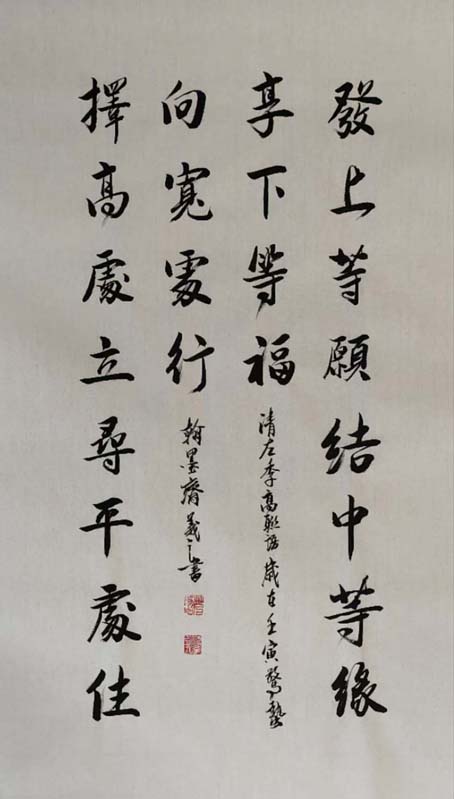 發上等願結中等緣
享下等福
清左季高聯語歲在壬寅驚蟄
擇高處立尋平處住
向寬處行
翰墨齋義之書